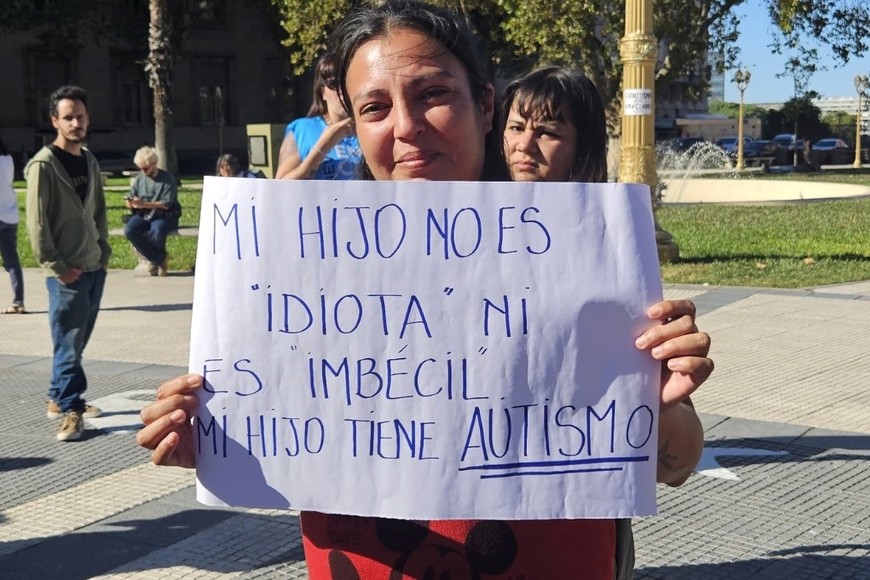 MI HIJO NO ES
"IDIOTA" NI
ES "IMBÉCIL"
MI HIJO TIENE AUTISMO